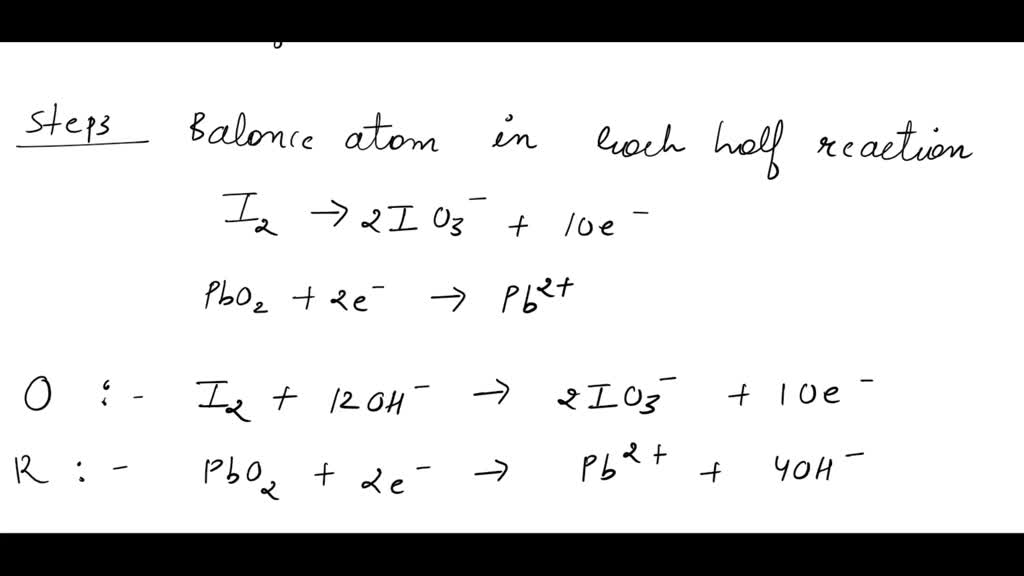 Step3 Balonce atom in each half reaction
I₂ → 2IO₃⁻ + 10e⁻
PbO₂ + 2e⁻ → Pb²⁺
O :- I₂ + 12OH⁻ → 2IO₃⁻ + 10e⁻
R :- PbO₂ + 2e⁻ → Pb²⁺ + 4OH⁻